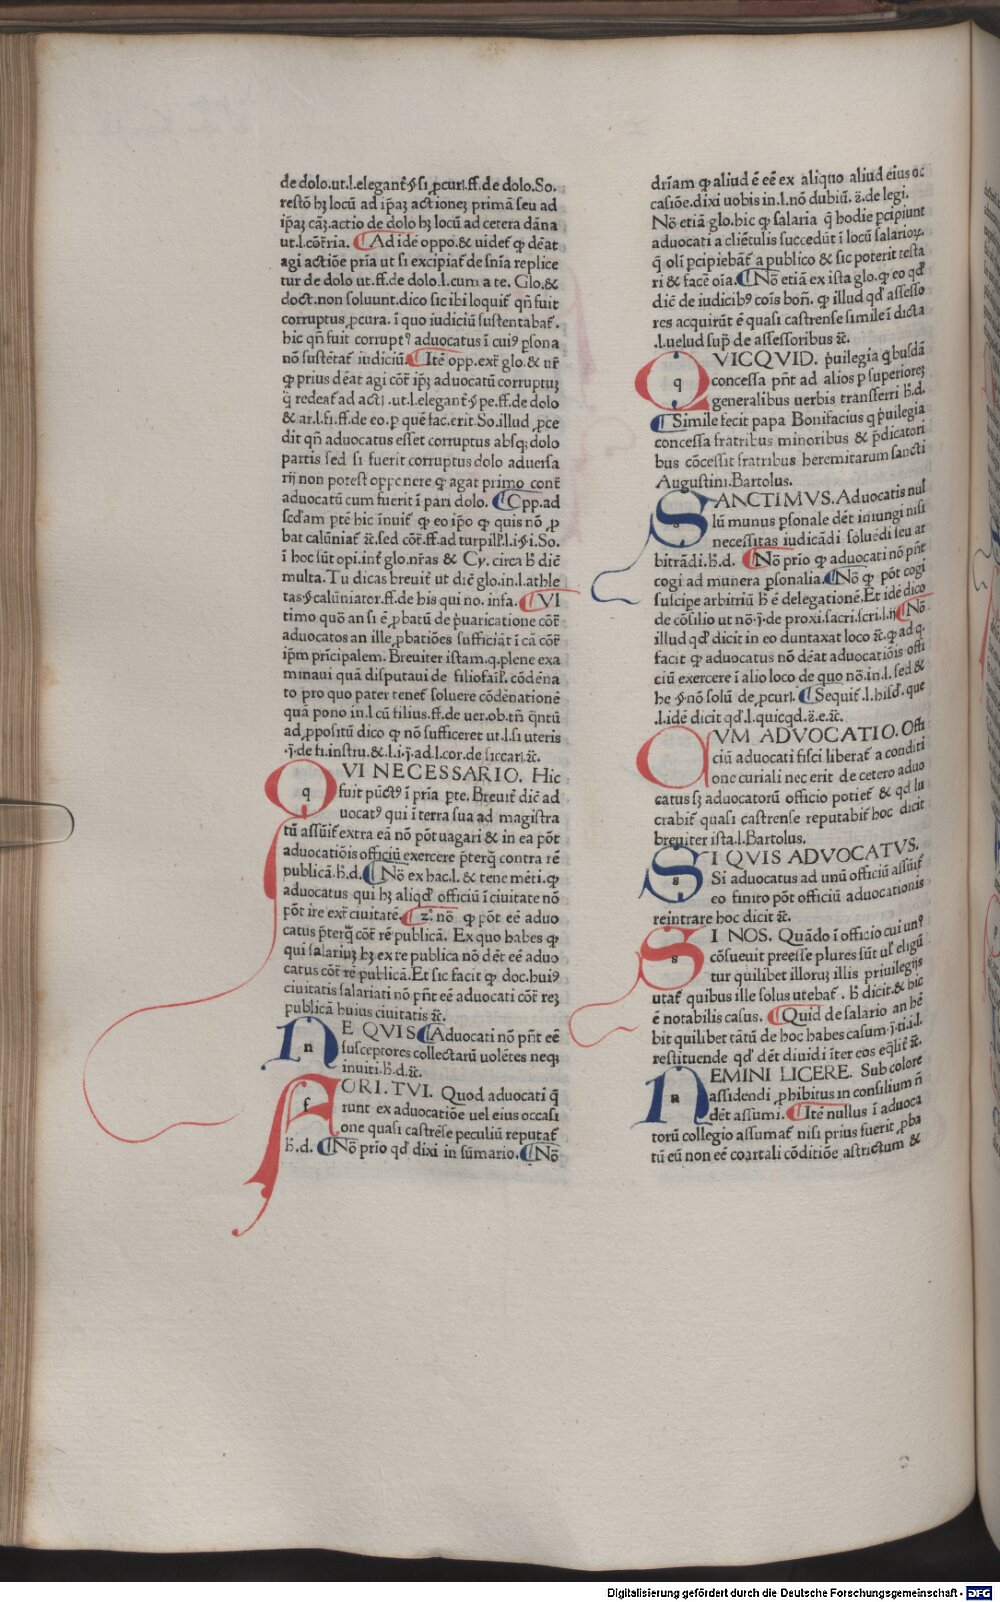 de dolo.ut.l.elegant᷑.§.si ꝓcur̃.ff.de dolo.So.
restõ hꝫ locũ ad ip̃aꝫ actioneꝫ primã seu ad
ip̃aꝫ cãꝫ.actio de dolo hꝫ locũ ad cetera dãna
ut.l.cõtr̃ia. ¶Ad idẽ oppo.& uidet᷑ ꝙ dẽat
agi actiõe pria ut si excipiat᷑ de sñia replice
tur de dolo ut.ff.de dolo.l.cum a te. Glo.&
doct.non soluunt.dico sic ibi loquit᷑ qñ fuit
corruptus ꝓcura. ĩ quo iudiciũ sustentabat᷑.
hic qñ fuit corruptꝰ aduocatus ĩ cuiꝰ ꝑsona
nõ sustẽtat᷑ iudiciũ ¶Itẽ opp.ext᷑ glo.& ur̃
ꝙ prius dẽat agi cõt᷑ ip̃ꝫ aduocatũ corruptuꝫ
q̃ redeat᷑ ad actĩ .ut.l.elegant᷑.§.pe.ff.de dolo
& ar.l.fi.ff.de eo.p quẽ fac.erit.So.illud ꝓce
dit qñ aduocatus esset corruptus absqꝫ dolo
partis sed si fuerit corruptus dolo aduersa
rij non potest opponere ꝙ agat primo cont᷑
aduocatũ cum fuerit ĩ pari dolo. ¶Opp.ad
scd̃am ptẽ hic inuit᷑ ꝙ eo ip̃o ꝙ quis nõ ꝓ
bat calũniat᷑ ⁊c̃.sed cõt᷑.ff.ad turpill̃.l.i.§.i.So.
ĩ hoc sũt opi.int᷑ glo.nr̃as & Cy. circa h̃ diẽ
multa. Tu dicas breuit᷑ ut diẽ glo.in.l.athle
tas.§.calũniator.ff.de his qui no. infa. ¶Vl
timo quõ an si ẽ ꝓbatũ de p̃uaricatione cõt᷑
aduocatos an ille ꝓbatiões sufficiãt ĩ cã cõt᷑
ip̃m prĩcipalem. Breuiter istam.q.plene exa
minaui quã disputaui de filiofaĩl. cõdẽna
to pro quo pater tenet᷑ soluere cõdẽnationẽ
quã pono in.l cũ filius.ff.de uer.ob.tñ q̃ntũ
ad ꝓpositũ dico ꝙ nõ sufficeret ut.l.si uteris
.j.de fi.instru.&.l.i.j.ad.l.cor.de siccari.⁊c̃.
QVI NECESSARIO. Hic
fuit pũctꝰ ĩ pria pte. Breuit᷑ diẽ ad
uocatꝰ qui ĩ terra sua ad magistra
tũ assũit᷑ extra eã nõ põt uagari & in ea põt
aduocatiõis officiũ exercere p̃terq̃ contra rẽ
publicã.h̃.d. ¶Nõ ex hac.l. & tene mẽti.ꝙ
aduocatus qui hꝫ aliqd᷑ officiũ ĩ ciuitate nõ
põt ire ext᷑ ciuitatẽ. ¶2.ͦ nõ ꝙ põt eẽ aduo
catus p̃terq̃ cõt᷑ rẽ publicã. Ex quo habes ꝙ
qui salariuꝫ hꝫ ex re publica nõ dẽt eẽ aduo
catus cõt᷑ rẽ publicã.Et sic facit ꝙ doc.huiꝰ
ciuitatis salariati nõ pñt eẽ aduocati cõt᷑ reꝫ
publicã huius ciuitatis ⁊c̃.
NE QVIS ¶Aduocati nõ pñt eẽ
susceptores collectarũ uolẽtes neqꝫ
inuiti.h̃.d.⁊c̃.
FORI. TVI. Quod aduocati q̃
runt ex aduocatiõe uel eius occasi
one quasi castrẽse peculiũ reputat᷑
h̃.d. ¶Nõ prio qd᷑ dixi in sũmario. ¶Nõ
dr̃iam ꝙ aliud ẽ eẽ ex aliquo aliud eius oc
casiõe.dixi uobis in.l.nõ dubiũ. ⁊̃.de legi.
Nõ etiã glo.hic ꝙ salaria q̃ hodie pcipiunt
aduocati a cliẽtulis succedũt ĩ locũ salarioꝝ.
q̃ oli pcipiebãt᷑ a publico & sic poterit testa
ri & facẽ oĩa. ¶Nõ etiã ex ista glo.ꝙ eo qd᷑
diẽ de iudicibꝰ coĩs boñ. ꝙ illud qd᷑ assesso
res acquirũt ẽ quasi castrense simile ĩ dicta
.l.uelud sup̃ de assessoribus ⁊c̃.
QVICQVID. p̃uilegia q̃busdã
concessa pñt ad alios p superioreꝫ
generalibus uerbis transferri h̃.d.
¶Simile fecit papa Bonifacius q̃ p̃uilegia
concessa fratribus minoribus & p̃dicatori
bus cõcessit fratribus heremitarum sancti
Augustini.Bartolus.
SANCTIMVS. Aduocatis nul
lũ munus ꝑsonale dẽt iniungi nisi
necessitas iudicãdi soluẽdi seu ar
bitrãdi.h̃.d. ¶Nõ prio ꝙ aduocati nõ pñt
cogi ad munera ꝑsonalia. ¶Nõ ꝙ põt cogi
suscipe arbitriũ h̃ ẽ delegationẽ.Et idẽ dico
de cõsilio ut nõ.j.de proxi.sacri.scri.l.ij ¶Nõ
illud qd᷑ dicit in eo duntaxat loco ⁊c̃.ꝙ ad q.
facit ꝙ aduocatus nõ dẽat aduocatiõis offi
ciũ exercere ĩ alio loco de quo nõ.in.l. sed &
he §.nõ solũ de ꝓcur̃. ¶Sequit᷑.l.hisd᷑. que
.l.idẽ dicit qd᷑.l.quicqd.⁊̃.e.⁊c̃.
CVM ADVOCATIO. Offi
ciũ aduocati fisci liberat᷑ a conditi
one curiali nec erit de cetero aduo
catus sꝫ aduocatorũ officio potiet᷑ & qd lu
crabit᷑ quasi castrense reputabit᷑ hoc dicit
breuiter ista.l.Bartolus.
SI QVIS ADVOCATVS.
Si aduocatus ad unũ officiũ assũit᷑
eo finito põt officiũ aduocationis
reintrare hoc dicit ⁊c̃.
SI NOS. Quãdo ĩ officio cui unꝰ
cõsueuit preesse plures sũt ul᷑ eligũ
tur quilibet illoruꝫ illis priuilegijs
utat᷑ quibus ille solus utebat᷑. h̃ dicit.& hic
ẽ notabilis casus. ¶Quid de salario an hẽ
bit quilibet tãtũ de hoc habes casum.j.ti.i.l.
restituende qd᷑ dẽt diuidi ĩter eos eq̃lit᷑ ⁊c̃.
NEMINI LICERE. Sub colore
assidendi ꝓhibitus in consilium ñ
dẽt assumi. ¶Itẽ nullus ĩ aduoca
torũ collegio assumat᷑ nisi prius fuerit ꝓba
tũ eũ non eẽ coartali cõditiõe astrictum &
Digitalisierung gefördert durch die Deutsche Forschungsgemeinschaft - DFG